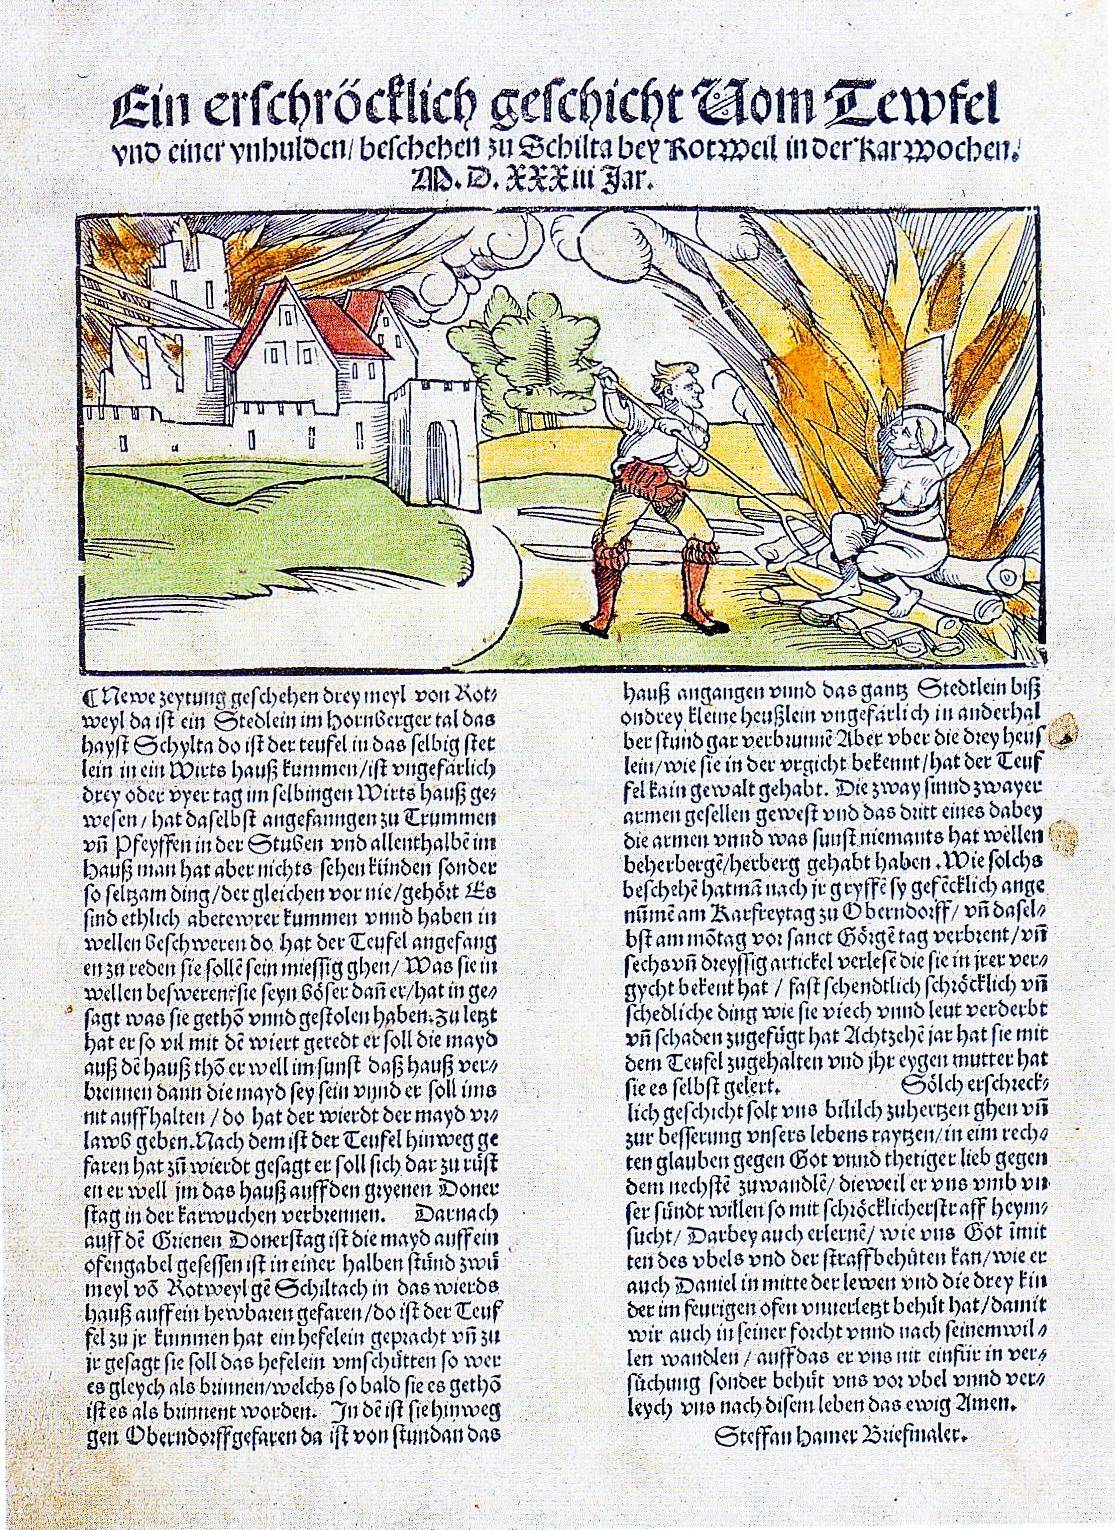 Ein erschröcklich geschicht Vom Tewfel
vnd einer vnhulden/ beschehen zu Schilta bey Rotweil in der Karwochen.
M. D. XXXiii Jar.
¶ Newe zeytung geschehen drey meyl von Rot⸗
weyl da ist ein Stedlein im Hornberger tal das
hayst Schylta do ist der teufel in das selbig stet
lein in ein Wirts hauß kummen/ist vngefärlich
drey oder vyer tag im selbingen Wirts hauß ge⸗
wesen/ hat daselbst angefanngen zu Trummen
vñ Pfeyffen in der Stuben vnd allenthalbē im
hauß man hat aber nichts sehen künden sonder
so seltzam ding/der gleichen vor nie/gehört Es
sind ethlich abetewrer kummen vnnd haben in
wellen beschweren do hat der Teufel angefang
en zu reden sie sollē sein miessig ghen/ Was sie in
wellen besweren: sie seyn böser dañ er/hat in ge⸗
sagt was sie gethō vnnd gestolen haben. Zu letzt
hat er so vil mit dē wiert geredt er soll die mayd
auß dē hauß thō er well im sunst daß hauß ver⸗
brennen dann die mayd sey sein vnnd er soll ims
nit auffhalten/ do hat der wierdt der mayd vr⸗
lawb geben. Nach dem ist der Teufel hinweg ge
faren hat zū wierdt gesagt er soll sich dar zu rüst
en er well jm das hauß auff den gryenen Doner
stag in der karwuchen verbrennen. Darnach
auff dē Grienen Donerstag ist die mayd auff ein
ofengabel gesessen ist in einer halben stünd zwū
meyl vō Rotweyl gē Schiltach in das wierds
hauß auff ein hewbaren gefaren/do ist der Teuf
fel zu jr kummen hat ein hefelein gepracht vñ zu
ir gesagt sie soll das hefelein vmschütten so wer
es gleych als brinnen/welchs so bald sie es gethō
ist es als brinnent worden. In dē ist sie hinweg
gen Oberndorff gefaren da ist von stundan das
hauß angangen vnnd das gantz Stedtlein biß
on drey kleine heußlein vngefärlich in anderhal
ber stund gar verbrunnē Aber vber die drey heus
lein/ wie sie in der vrgicht bekennt/hat der Teuf
fel kain gewalt gehabt. Die zway sinnd zwayer
armen gesellen gewest vnd das dritt eines dabey
die armen vnnd was sunst niemants hat wellen
beherbergē/herberg gehabt haben. Wie solchs
beschehē hat mā nach jr gryffē sy gefēcklich ange
nūmē am Karfreytag zu Oberndorff/ vñ dasel⸗
bst am mōtag vor sanct Görgē tag verbrent/vñ
sechs vñ dreyssig artickel verlesē die sie in jrer ver⸗
gycht bekent hat / fast schendtlich schröcklich vñ
schedliche ding wie sie viech vnnd leut verderbt
vñ schaden zugefügt hat Achtzehē jar hat sie mit
dem Teufel zugehalten vnd jhr eygen mutter hat
sie es selbst gelert. Sölch erschreck⸗
lich geschicht solt vns bililch zuhertzen ghen vñ
zur besserung vnsers lebens raytzen/in eim rech⸗
ten glauben gegen Got vnnd thetiger lieb gegen
dem nechstē zuwandlē/ dieweil er vns vmb vn
ser sündt willen so mit schröcklicher straff heym⸗
sucht/ Darbey auch erlernē/ wie vns Got īmit
ten des vbels vnd der straff behüten kan/wie er
auch Daniel in mitte der lewen vnd die drey kin
der im feurigen ofen vnuerletzt behüt hat/damit
wir auch in seiner forcht vnnd nach seinem wil⸗
len wandlen / auff das er vns nit einfür in ver⸗
süchung sonder behüt vns vor vbel vnnd ver⸗
leych vns nach disem leben das ewig Amen.
Steffan Hamer Briefmaler.